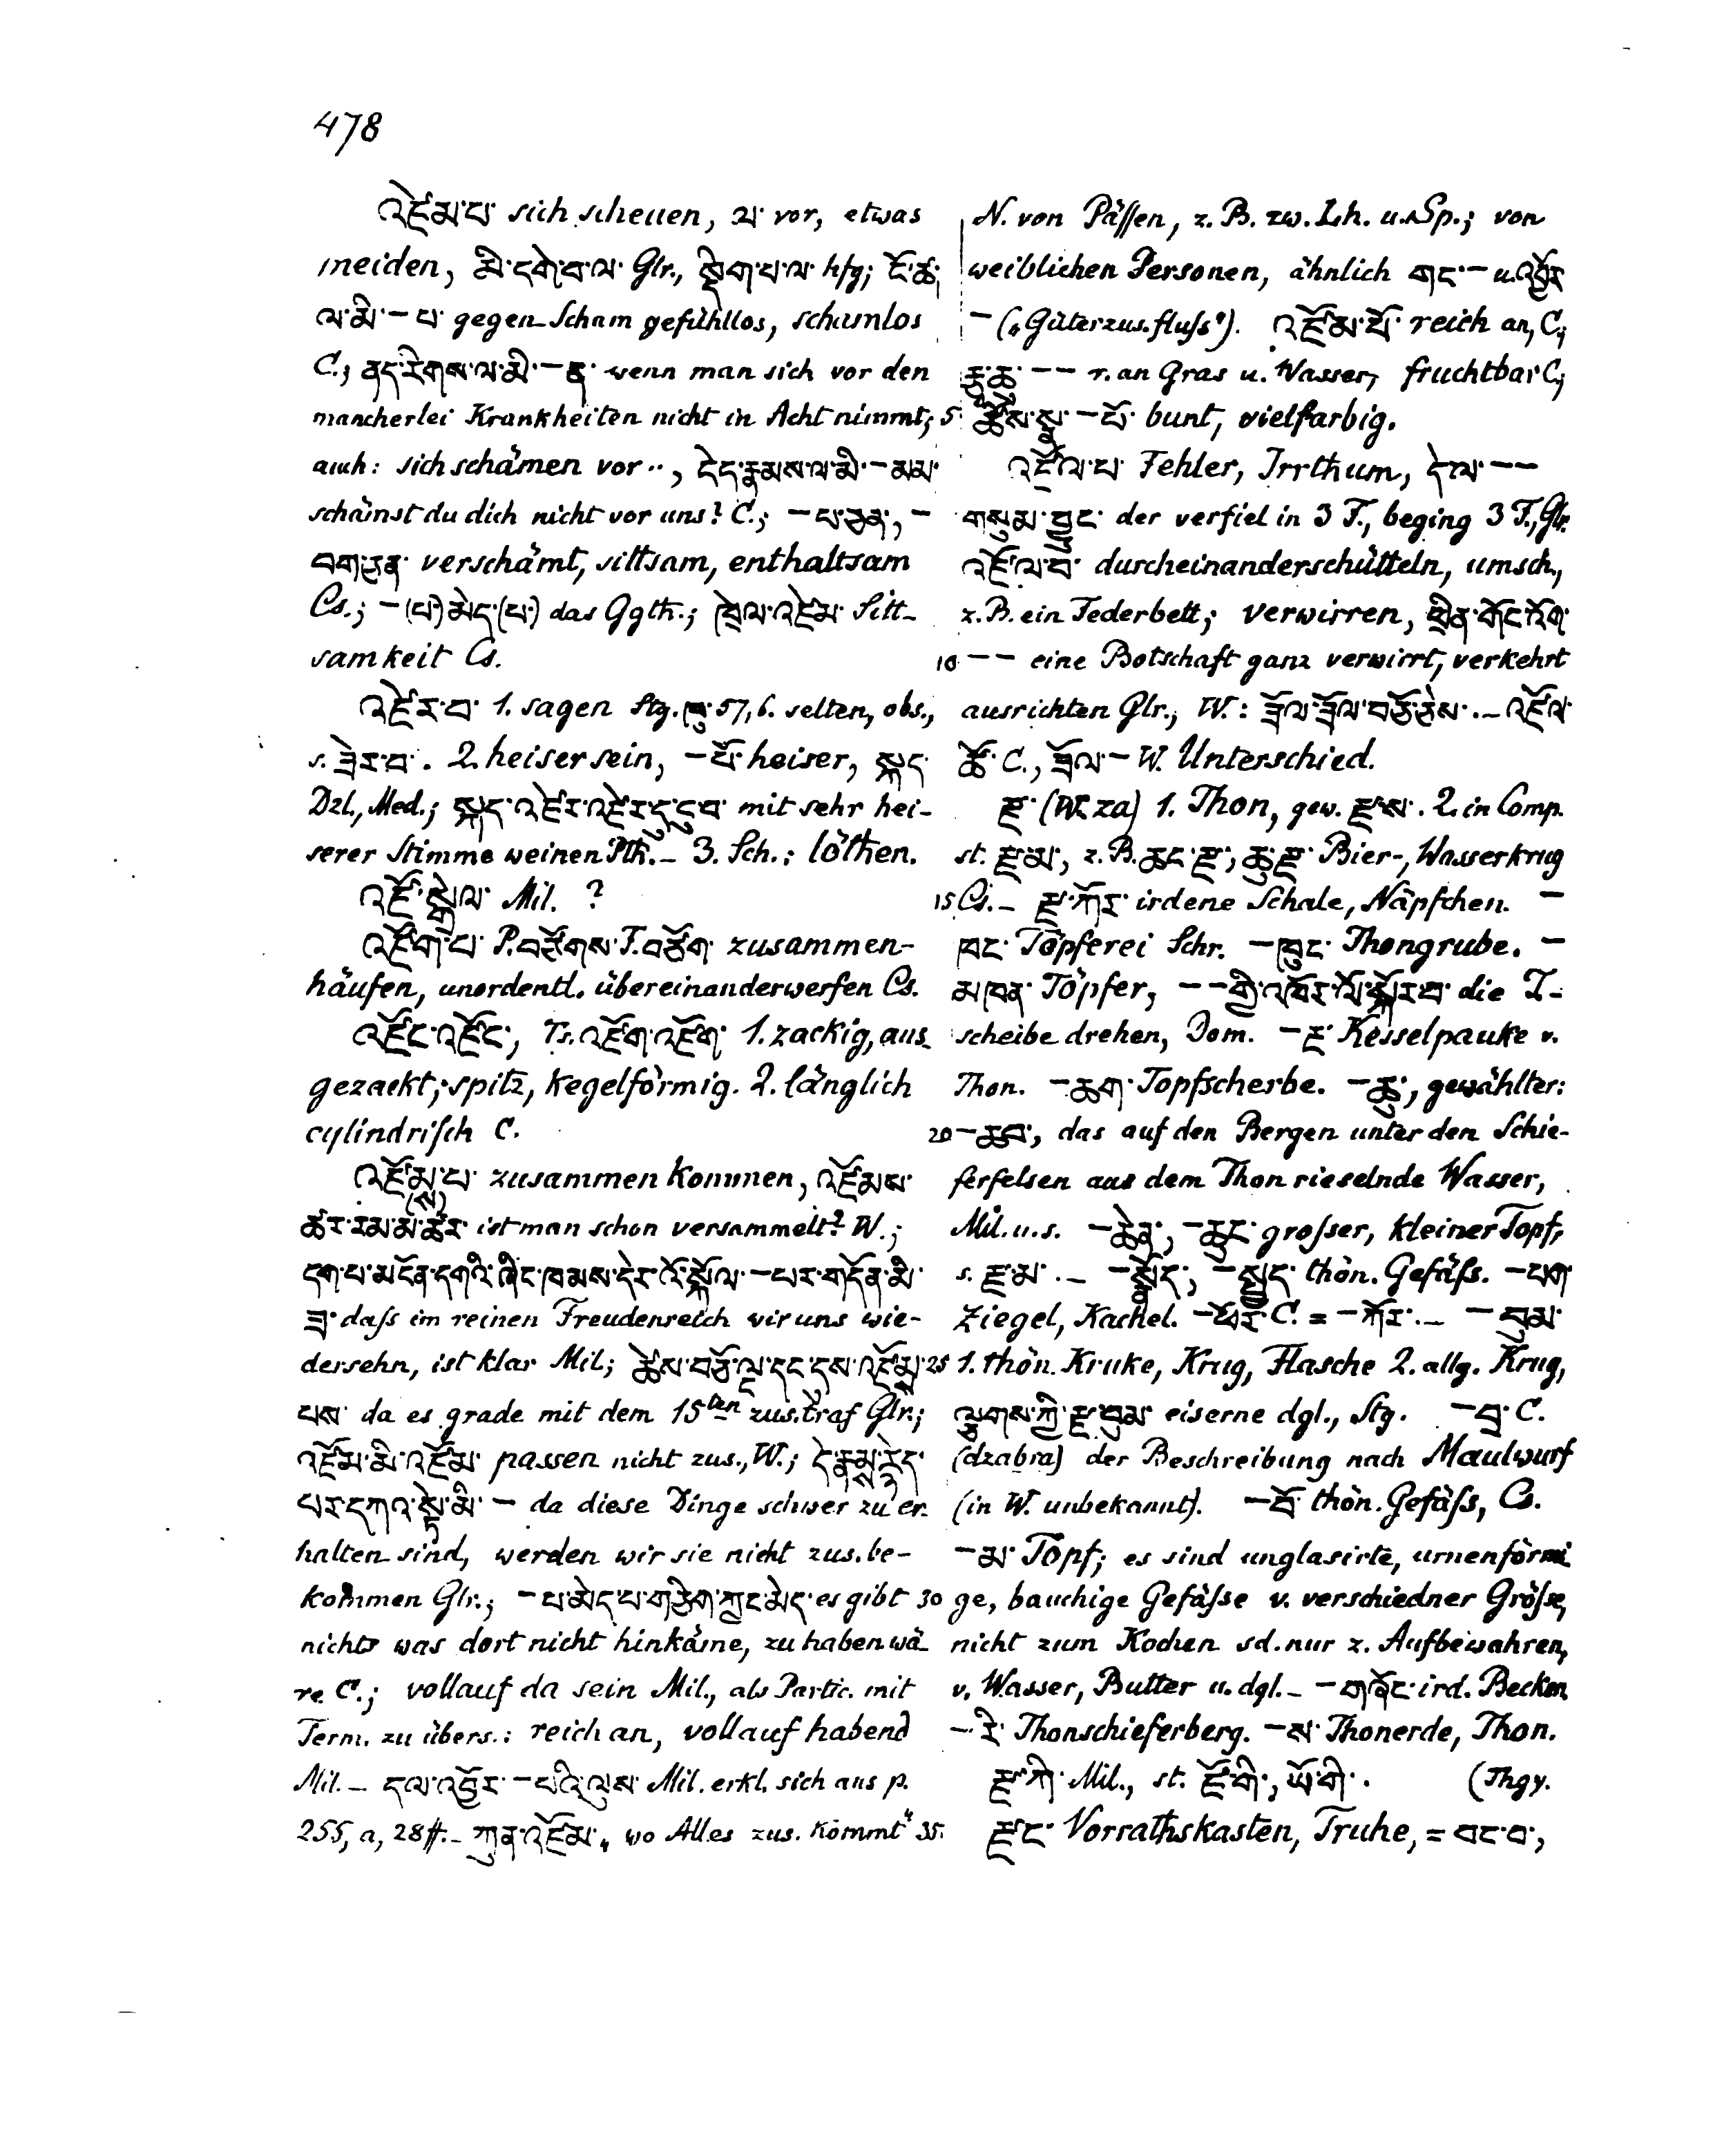 478
འཛེམ་པ་ sich scheuen, ལ་ vor, etwas
meiden, མི་དགེ་བ་ལ་ Glr., སྡིག་པ་ལ་ hfg; ངོ་ཚ་
ལ་མི་ – པ་ gegen Scham gefühllos, schamlos
C.; ནད་རིགས་ལ་མི་ – ན་ wenn man sich vor den
mancherlei Krankheiten nicht in Acht nimmt;
auch: sich schämen vor .., ངེད་རྣམས་ལ་མི་ – མམ་
schämst du dich nicht vor uns? C.; – པ་ཅན་, –
བག་ཅན་ verschämt, sittsam, enthaltsam
Cs.; – (པ་) མེད་ (པ་) das Ggth.; ཁྲེལ་འཛེམ་ Sitt-
samkeit Cs.
འཛེར་བ་ 1. sagen Stg. 57,6. selten, obs.,
s. ཟེར་བ་. 2. heiser sein, – པོ་ heiser, སྐད་
Dzl., Med.; སྐད་འཛེར་འཛེར་དུ་ངུ་བ་ mit sehr hei-
serer Stimme weinen Pth. – 3. Sch.: löthen.
འཛོ་སྒེལ་ Mil. ?
འཛོག་པ་ P. བཛོགས་ F. བཙོག་ zusammen-
häufen, unordentl. übereinanderwerfen Cs.
འཛོང་འཛོང་, Ts. འཛོག་འཛོག་ 1. zackig, aus-
gezackt; spitz, kegelförmig. 2. länglich
cylindrisch C.
འཛོམ(ས)་པ་ zusammen kommen, འཛོམས་
ཚར་རམ་མ་ཚར་ ist man schon versammelt? W.;
དག་པ་མངོན་དགའི་ཞིང་ཁམས་དེར་འོ་སྐོལ་ – པར་གདོན་མི་
ཟ་ dass im reinen Freudenreich wir uns wie-
dersehn, ist klar Mil; ཚེས་བཅོ་ལྔ་དང་དུས་འཛོམས་
པས་ da es grade mit dem 15ten zus. traf Glr.;
འཛོམ་མི་འཛོམ་ passen nicht zus., W.; དེ་རྣམས་རྙེད་
པར་དཀའ་སྟེ་མི་ – da diese Dinge schwer zu er-
halten sind, werden wir sie nicht zus. be-
kommen Glr.; – པ་མེད་པ་གཅིག་ཀྱང་མེད་ es gibt
nichts was dort nicht hinkäme, zu haben wä-
re C.; vollauf da sein Mil., als Partic. mit
Term. zu übers.: reich an, vollauf habend
Mil. – དལ་འབྱོར་ – པའི་ལུས་ Mil. erkl. sich aus p.
255, a, 28ff. – ཀུན་འཛོམ་ „wo Alles zus. kommt"
N. von Pässen, z. B. zw. Lh. u. Sp.; von
weiblichen Personen, ähnlich གང་ – u. འབྱོར་
– („Güterzus.fluss"). འཛོམ་པོ་ reich an, C.;
རྩྭ་ཆུ་ – – r. an Gras u. Wasser, fruchtbar C.;
5 ཚོས་སྣ་ – པོ་ bunt, vielfarbig.
འཛོལ་པ་ Fehler, Irrthum, དེ་ལ་ – –
གསུམ་བྱུང་ der verfiel in 3 F., beging 3 F., Glr.
འཛོལ་བ་ durcheinanderschütteln, umsch.,
z. B. ein Federbett; verwirren, ཕྲིན་གོང་འོག་
10 – – eine Botschaft ganz verwirrt, verkehrt
ausrichten Glr.; W.: ཟོལ་ཟོལ་བཅོ་ཅེས་. – འཛོལ་
ཚོ་ C., ཟོལ་ – W. Unterschied.
རྫ་ (W. za) 1. Thon, gew. རྫ་ས་. 2. in Comp.
st. རྫ་མ་, z. B. ཆང་རྫ་, ཆུ་རྫ་ Bier-, Wasserkrug
15 Cs. – རྫ་ཀོར་ irdene Schale, Näpfchen. –
ཁང་ Töpferei Schr. – ཁུང་ Thongrube. –
མཁན་ Töpfer, – – གྱི་འཁོར་ལོ་སྐོར་བ་ die T.-
scheibe drehen, Dom. – རྔ་ Kesselpauke v.
Thon. – ཆག་ Topfscherbe. – ཆུ་, gewählter:
20 – ཆབ་, das auf den Bergen unter den Schie-
ferfelsen aus dem Thon rieselnde Wasser,
Mil. u. s. – ཆེན་, – ཆུང་ grosser, kleiner Topf,
s. རྫ་མ་. – – སྣོད་, – སྤྱད་ thön. Gefäss. – པག་
Ziegel, Kachel. – ཕོར་ C. = – ཀོར་. – – བུམ་
25 1. thön. Kruke, Krug, Flasche 2. allg. Krug,
ལྕགས་ཀྱི་རྫ་བུམ་ eiserne dgl., Stg. – བྲ་ C.
(dzabra) der Beschreibung nach Maulwurf
(in W. unbekannt). – བོ་ thön. Gefäss, Cs.
– མ་ Topf; es sind unglasirte, urnenförmi-
30 ge, bauchige Gefässe v. verschiedner Grösse,
nicht zum Kochen sd. nur z. Aufbewahren,
v. Wasser, Butter u. dgl. – – གཞོང་ ird. Becken
– རི་ Thonschieferberg. – ས་ Thonerde, Thon.
རྫ་ཀི་ Mil., st. རྫོ་གི་, ཡོ་གི་. (Thgy.
35. རྫང་ Vorrathskasten, Truhe, = བང་བ་,